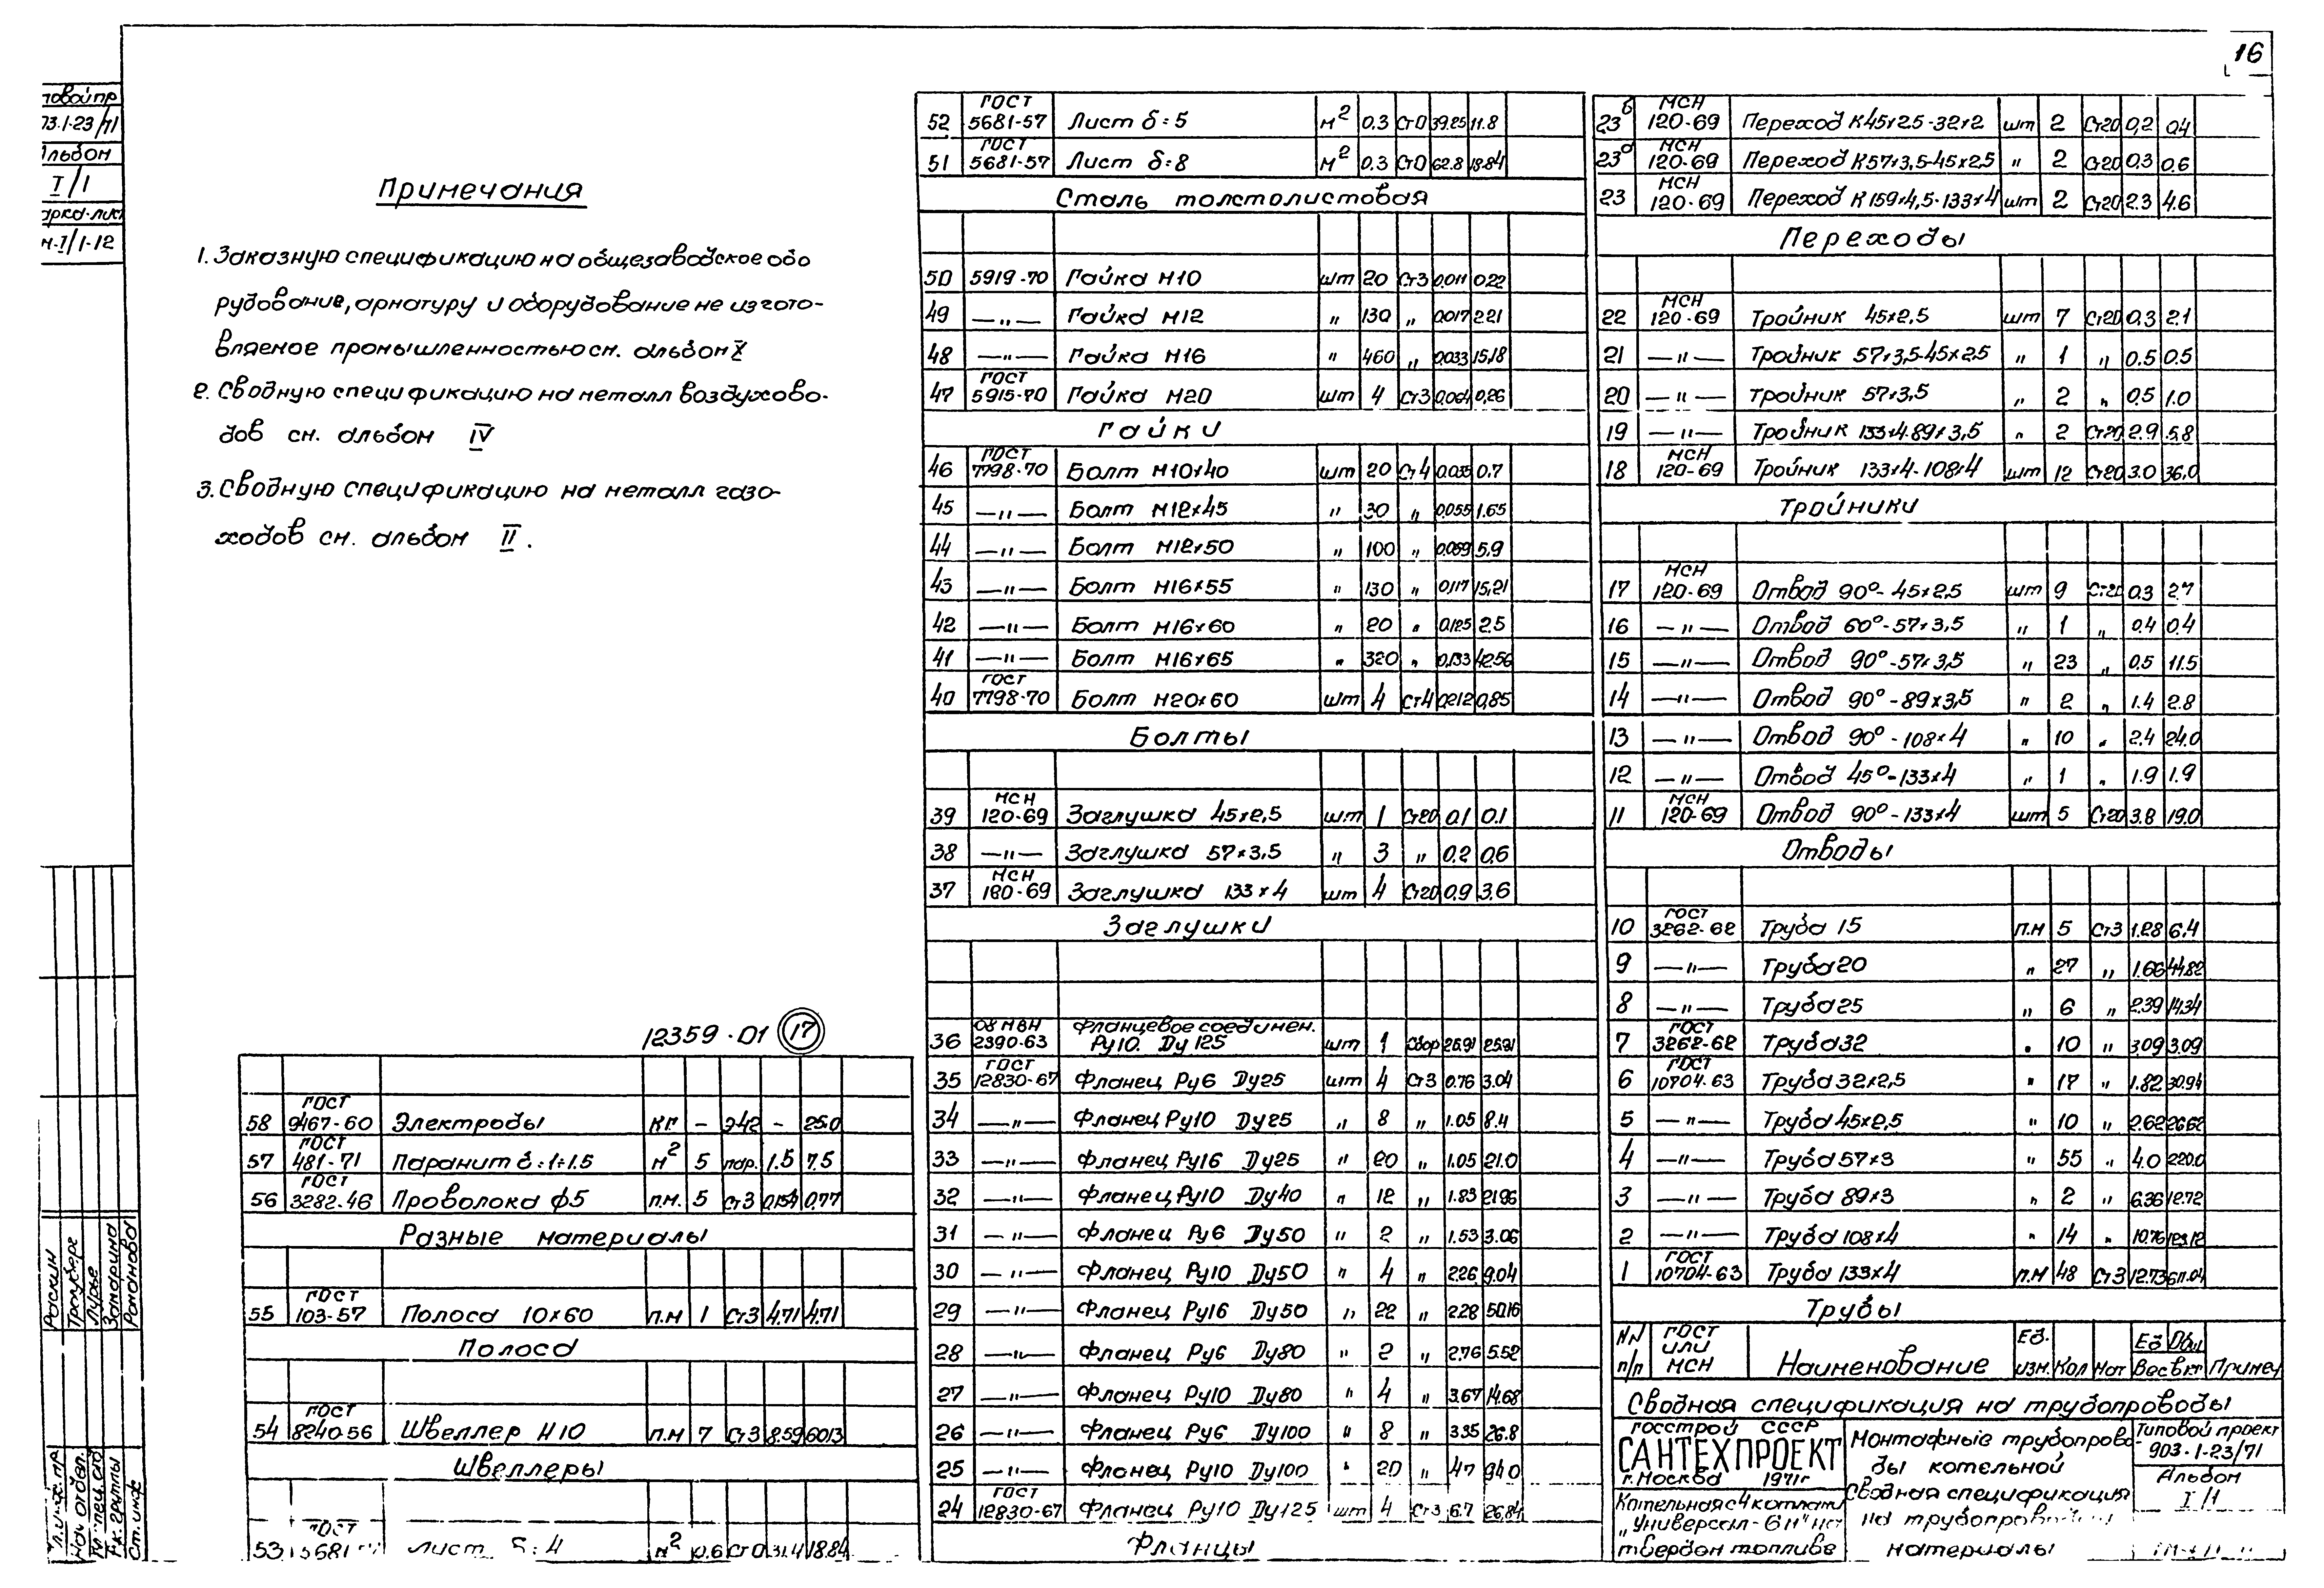 16
Примечания
1. Заказную спецификацию на общезаводское обо
рудование, арматуру и оборудование не изгото-
вляемое промышленностью см. альбом X
2. Сводную спецификацию на металл воздухово-
дов см. альбом IV
3. Сводную спецификацию на металл газо-
ходов см. альбом II.
12359-01 17
58 ГОСТ 9467-60 Электроды кг - Э42 - 25.0
57 ГОСТ 481-71 Паранит δ=1÷1.5 м2 5 пар. 1.5 7.5
56 ГОСТ 3282-46 Проволока ф5 п.м. 5 Ст3 0,154 0,77
Разные материалы
55 ГОСТ 103-57 Полоса 10×60 п.м 1 Ст3 4.71 4.71
Полоса
54 ГОСТ 8240-56 Швеллер N10 п.м 7 Ст3 8.59 60.13
Швеллеры
53 ГОСТ 5681 Лист δ=4 м2 0.6 Ст0 31.4 18.84
52 ГОСТ 5681-57 Лист δ=5 м2 0.3 Ст0 39.25 11.8
51 ГОСТ 5681-57 Лист δ=8 м2 0.3 Ст0 62.8 18.84
Сталь толстолистовая
50 5919-70 Гайка М10 шт 20 Ст3 0.011 0.22
49 —"— Гайка М12 " 130 " 0.017 2.21
48 —"— Гайка М16 " 460 " 0.033 15,18
47 ГОСТ 5915-70 Гайка М20 шт 4 Ст3 0,064 0,26
Гайки
46 ГОСТ 7798-70 Болт М10×40 шт 20 Ст4 0.035 0.7
45 —"— Болт М12×45 " 30 " 0.055 1.65
44 —"— Болт М12×50 " 100 " 0.059 5.9
43 —"— Болт М16×55 " 130 " 0,117 15,21
42 —"— Болт М16×60 " 20 " 0.125 2.5
41 —"— Болт М16×65 " 320 " 0,133 42.56
40 ГОСТ 7798-70 Болт М20×60 шт 4 Ст4 0,212 0,85
Болты
39 МСН 120-69 Заглушка 45×2,5 шт 1 Ст20 0.1 0.1
38 —"— Заглушка 57×3,5 " 3 " 0.2 0,6
37 МСН 180-69 Заглушка 133×4 шт 4 Ст20 0,9 3,6
Заглушки
36 08 МВН 2390-63 Фланцевое соединен. Ру10. Ду 125 шт 1 Сбор 25.91 25.91
35 ГОСТ 12830-67 Фланец Ру6 Ду25 шт 4 Ст3 0.76 3.04
34 —"— Фланец Ру10 Ду25 " 8 " 1.05 8.4
33 —"— Фланец Ру16 Ду25 " 20 " 1.05 21.0
32 —"— Фланец Ру10 Ду40 " 12 " 1.83 21.96
31 —"— Фланец Ру6 Ду50 " 2 " 1.53 3.06
30 —"— Фланец Ру10 Ду50 " 4 " 2.26 9.04
29 —"— Фланец Ру16 Ду50 " 22 " 2.28 50.16
28 —"— Фланец Ру6 Ду80 " 2 " 2.76 5.52
27 —"— Фланец Ру10 Ду80 " 4 " 3.67 14.68
26 —"— Фланец Ру6 Ду100 " 8 " 3.35 26.8
25 —"— Фланец Ру10 Ду100 " 20 " 4.7 94.0
24 ГОСТ 12830-67 Фланец Ру10 Ду125 шт 4 Ст3 6.7 26,84
Фланцы
23б МСН 120-69 Переход К45×2.5-32×2 шт 2 Ст20 0,2 0,4
23а МСН 120-69 Переход К57×3,5-45×2,5 " 2 Ст20 0.3 0.6
23 МСН 120-69 Переход К159×4,5-133×4 шт 2 Ст20 2.3 4.6
Переходы
22 МСН 120-69 Тройник 45×2,5 шт 7 Ст20 0.3 2.1
21 —"— Тройник 57×3,5-45×2.5 " 1 " 0.5 0.5
20 —"— Тройник 57×3,5 " 2 " 0.5 1.0
19 —"— Тройник 133×4-89×3,5 " 2 Ст20 2.9 5,8
18 МСН 120-69 Тройник 133×4-108×4 шт 12 Ст20 3.0 36,0
Тройники
17 МСН 120-69 Отвод 90°-45×2.5 шт 9 Ст20 0.3 2.7
16 —"— Отвод 60°-57×3,5 " 1 " 0.4 0.4
15 —"— Отвод 90°-57×3,5 " 23 " 0.5 11.5
14 —"— Отвод 90°-89×3,5 " 2 " 1.4 2.8
13 —"— Отвод 90°-108×4 " 10 " 2.4 24.0
12 —"— Отвод 45°-133×4 " 1 " 1.9 1.9
11 МСН 120-69 Отвод 90°-133×4 шт 5 Ст20 3.8 19.0
Отводы
10 ГОСТ 3262-62 Труба 15 п.м 5 Ст3 1.28 6.4
9 —"— Труба 20 " 27 " 1.66 44.82
8 —"— Труба 25 " 6 " 2.39 14.34
7 ГОСТ 3262-62 Труба 32 " 10 " 3.09 3.09
6 ГОСТ 10704-63 Труба 32×2,5 " 17 " 1.82 30.94
5 —"— Труба 45×2,5 " 10 " 2.62 26.62
4 —"— Труба 57×3 " 55 " 4.0 220.0
3 —"— Труба 89×3 " 2 " 6.36 12.72
2 —"— Труба 108×4 " 14 "
1 ГОСТ 10704-63 Труба 133×4 п.м 48 Ст3 12.73 611.04
Трубы
NN п/п ГОСТ или МСН Наименование Ед. изм. Кол Мат Ед Общ Вес в кг Примеч
Сводная спецификация на трубопроводы
Госстрой СССР
САНТЕХПРОЕКТ
г. Москва 1971г
Котельная с 4 котлами
„Универсал-6м" на
твердом топливе
Монтажные трубопрово-
ды котельной
Сводная спецификация
на трубопроводы
материалы
Типовой проект
903-1-23/71
Альбом
I/1
товой пр
03.1-23/71
Альбом
I/1
арка-лист
м-I/1-12
Раскин
Лурье
Замарина
Романова
Нач отдел.
Рук. группы
Ст. инж